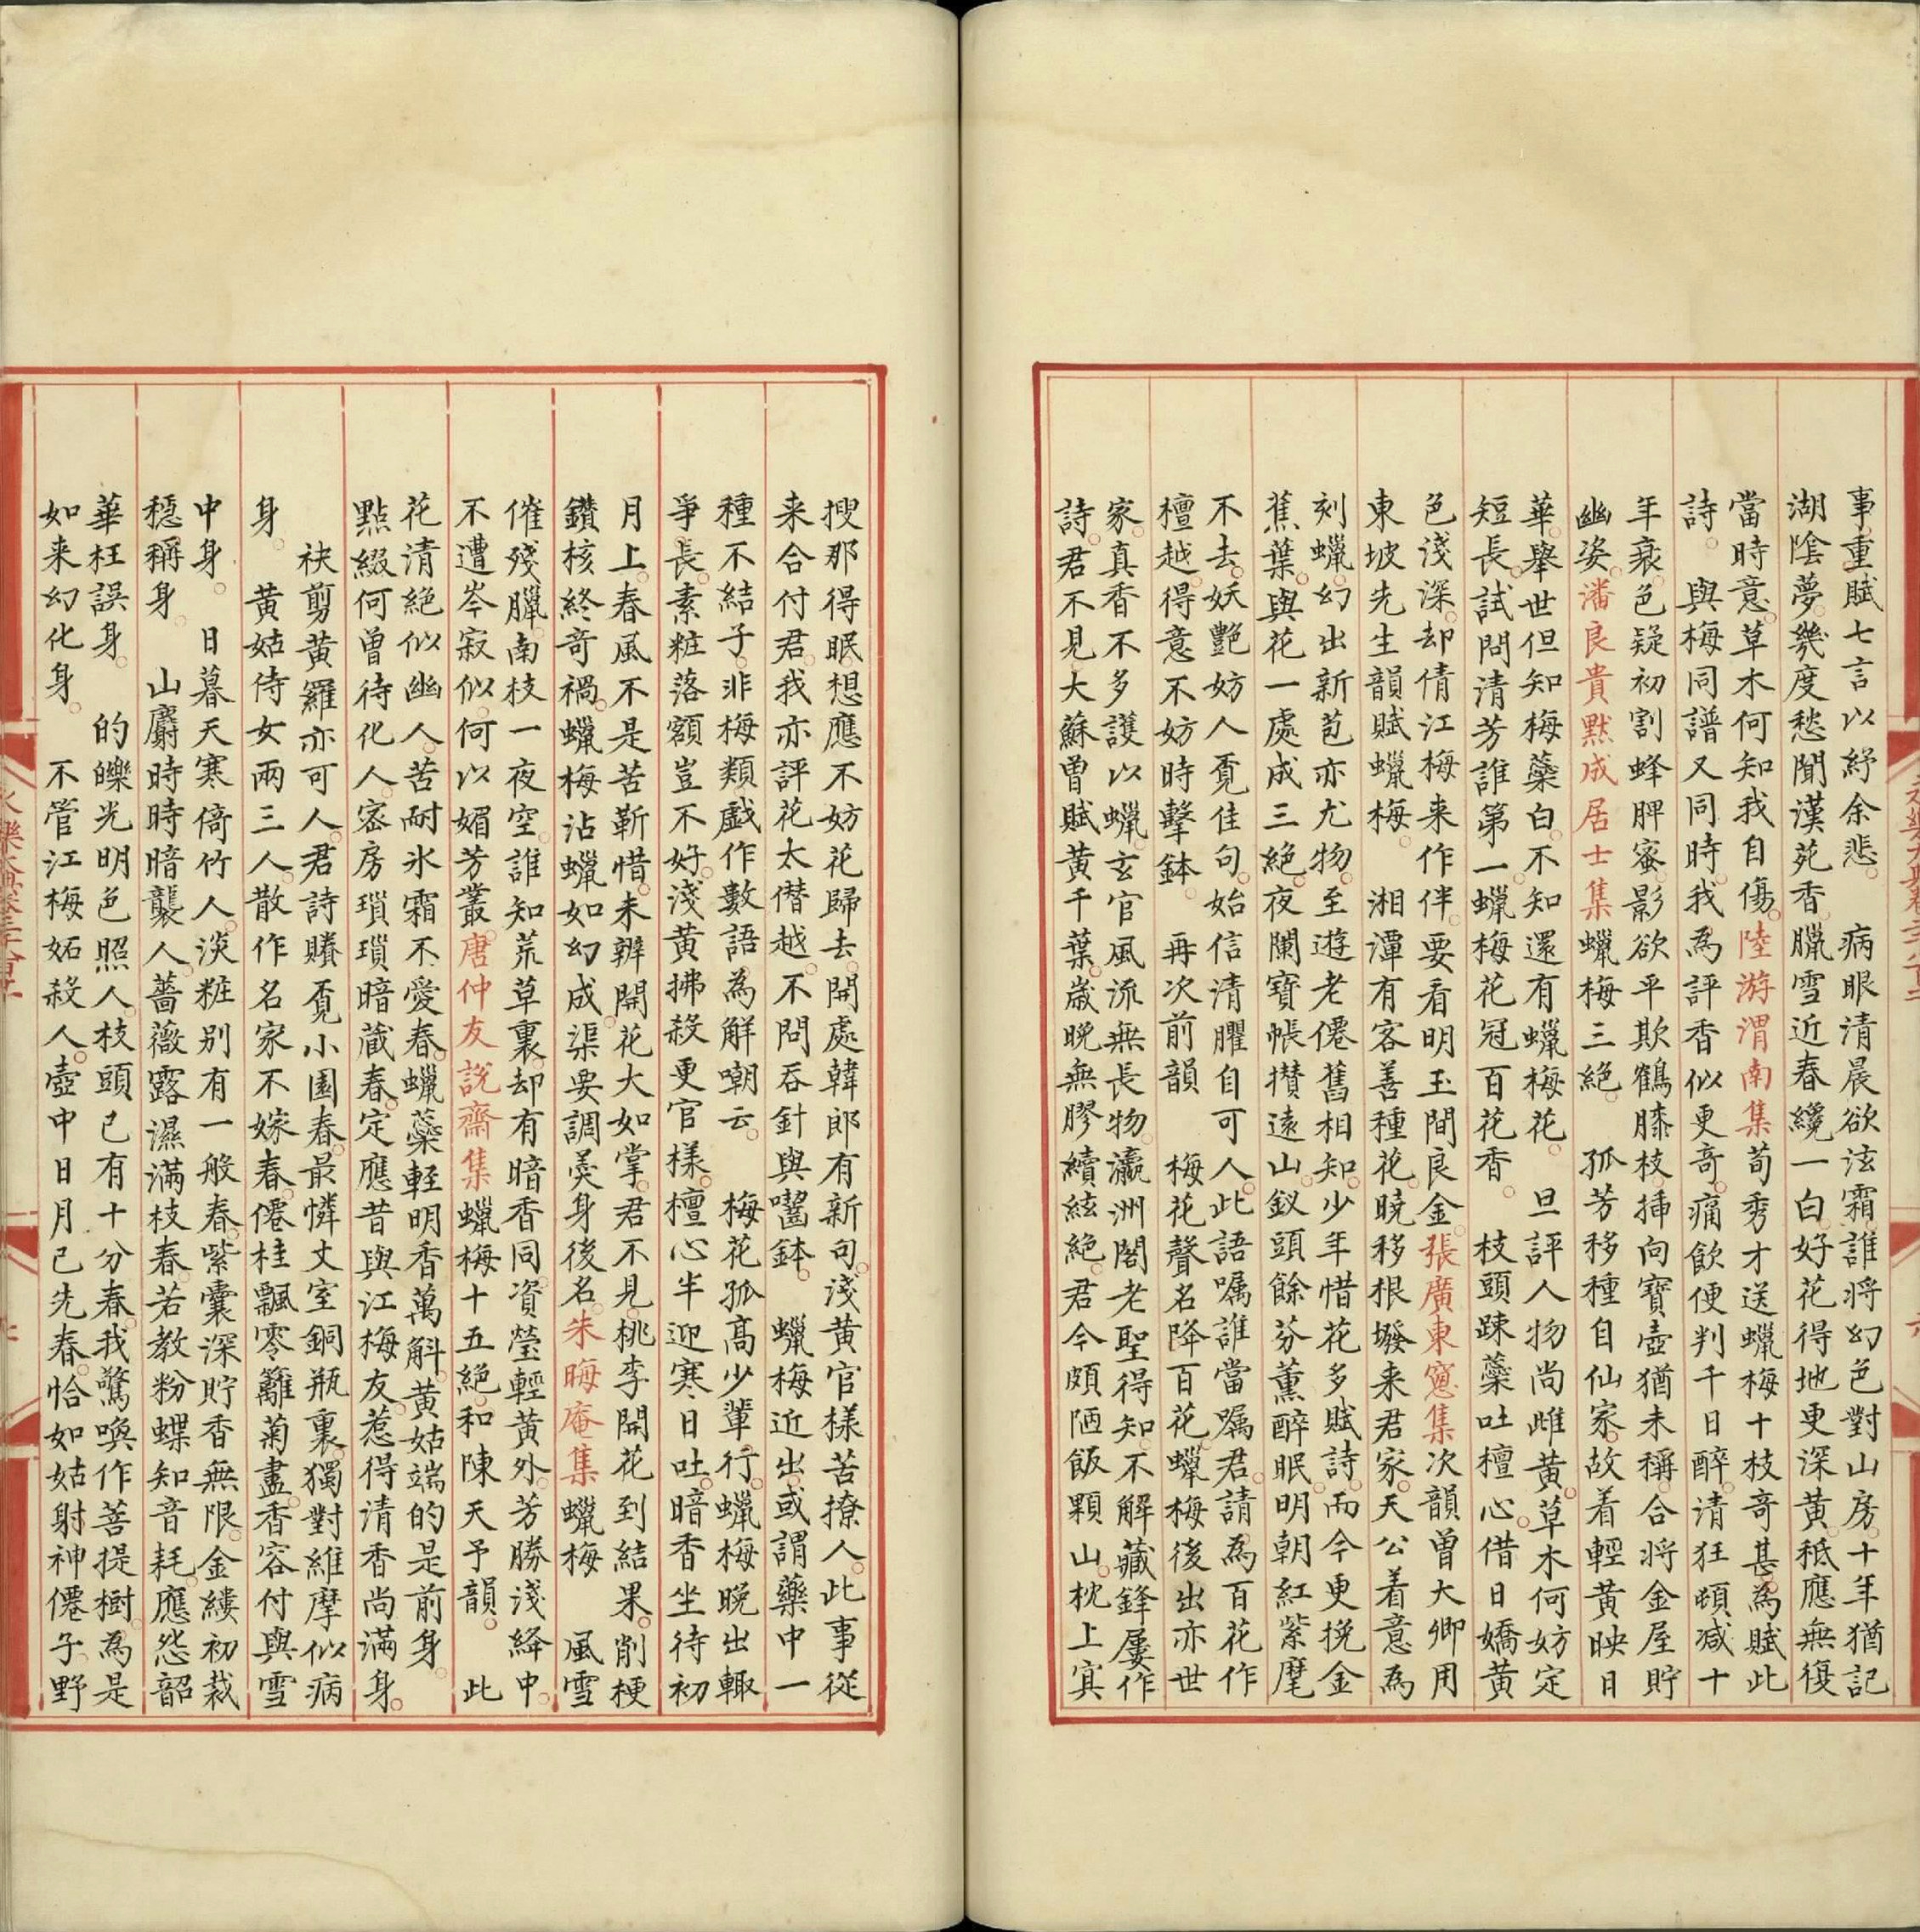 事重賦七言以紓余悲 病眼清晨欲泫霜誰將幻色對山房十年猶記
湖陰夢幾度愁聞漢苑香臘雪近春纔一白好花得地更深黃秪應無復
當時意草木何知我自傷陸游渭南集荀秀才送蠟梅十枝奇甚為賦此
詩 與梅同譜又同時我為評香似更奇痛飲便判千日醉清狂頓減十
年衰色疑初割蜂脾蜜影欲平欺鶴膝枝揷向寶壺猶未稱合將金屋貯
幽姿潘良貴默成居士集蠟梅三絕 孤芳移種自仙家故着輕黃映日
華舉世但知梅蘂白不知還有蠟梅花 旦評人物尚雌黃草木何妨定
短長試問清芳誰第一蠟梅花冠百花香 枝頭踈蘂吐檀心借日嬌黃
色淺深却倩江梅来作伴要看明玉間良金張廣東窻集次韻曾大卿用
東坡先生韻賦蠟梅 湘潭有客善種花曉移根撥来君家天公着意為
刻蠟幻出新苞亦尤物至遊老僊舊相知少年惜花多賦詩而今更挽金
蕉葉與花一處成三絕夜闌寶帳攅遠山釵頭餘芬薰醉眠明朝紅紫麾
不去妖豔妨人覔佳句始信清臞自可人此語嘱誰當嘱君請為百花作
檀越得意不妨時擊鉢 再次前韻 梅花聲名降百花蠟梅後出亦世
家真香不多護以蠟玄官風流無長物瀛洲閣老聖得知不解藏鋒屢作
詩君不見大蘇曾賦黃千葉歲晚無膠續絃絕君今頗陋飯顆山枕上㝠
搜那得眠想應不妨花歸去開處韓郎有新句淺黃官樣苦撩人此事從
来合付君我亦評花太僭越不問吞針與囓鉢 蠟梅近出或謂藥中一
種不結子非梅類戲作數語為解嘲云 梅花孤高少輩行蠟梅晚出輙
爭長素粧落額豈不好淺黃拂殺更官樣檀心半迎寒日吐暗香坐待初
月上春風不是苦靳惜未辦開花大如掌君不見桃李開花到結果削梗
鑚核終奇禍蠟梅沾蠟如幻成渠要調羮身後名朱晦庵集蠟梅 風雪
催殘臘南枝一夜空誰知荒草裏却有暗香同資瑩輕黃外芳勝淺絳中
不遭岑寂似何以媚芳叢唐仲友說齋集蠟梅十五絕和陳天予韻 此
花清絕似幽人苦耐氷霜不愛春蠟蘂輕明香萬斛黃姑端的是前身
點綴何曾待化人宻房瑣瑣暗蔵春定應昔與江梅友惹得清香尚滿身
袂剪黃羅亦可人君詩賸覔小園春最憐丈室銅瓶裏獨對維摩似病
身 黃姑侍女兩三人散作名家不嫁春僊桂飄零籬菊盡香容付與雪
中身 日暮天寒倚竹人淡粧别有一般春紫囊深貯香無限金縷初裁
穩稱身 山麝時時暗襲人薔薇露濕滿枝春若教粉蝶知音耗應怨韶
華枉誤身 的皪光明色照人枝頭已有十分春我驚喚作菩提樹為是
如来幻化身 不管江梅妬殺人壺中日月已先春恰如姑射神僊子野